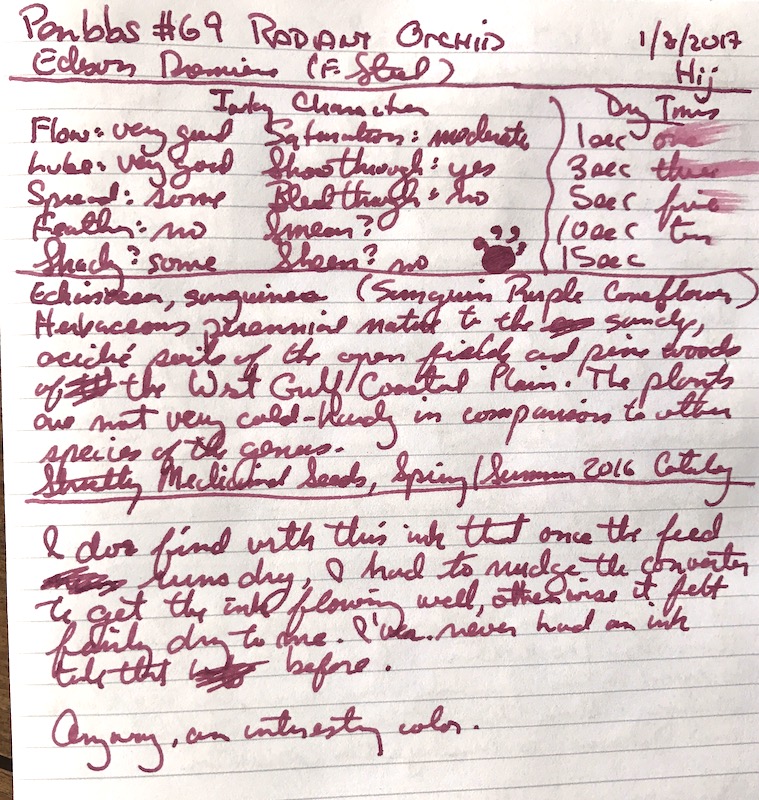 Penbbs #69 RADIANT ORCHID 1/8/2017
Edison Premiere (F. Steel) Hij
Inky Characters Dry Times
Flow: very good Saturation: moderate 1 sec one
Lube: very good Show through: yes 3 sec three
Spread: some Bleedthrough: no 5 sec five
Feather: no Smear? 10 sec ten
Shady? some Sheen? no 15 sec
Echinacea, sanguinea (Sanguin Purple Coneflower)
Herbaceous perennial native to the sandy,
acidic soils of the open fields and pine woods
of the West Gulf Coastal Plain. The plants
are not very cold-hardy in comparison to other
species of the genus.
Strictly Medicinal Seeds, Spring/Summer 2016 Catalog
I do find with this ink that once the feed
runs dry, I had to nudge the converter
to get the ink flowing well, otherwise it felt
fairly dry to me. I've never had an ink
like that before.
Anyway, an interesting color.